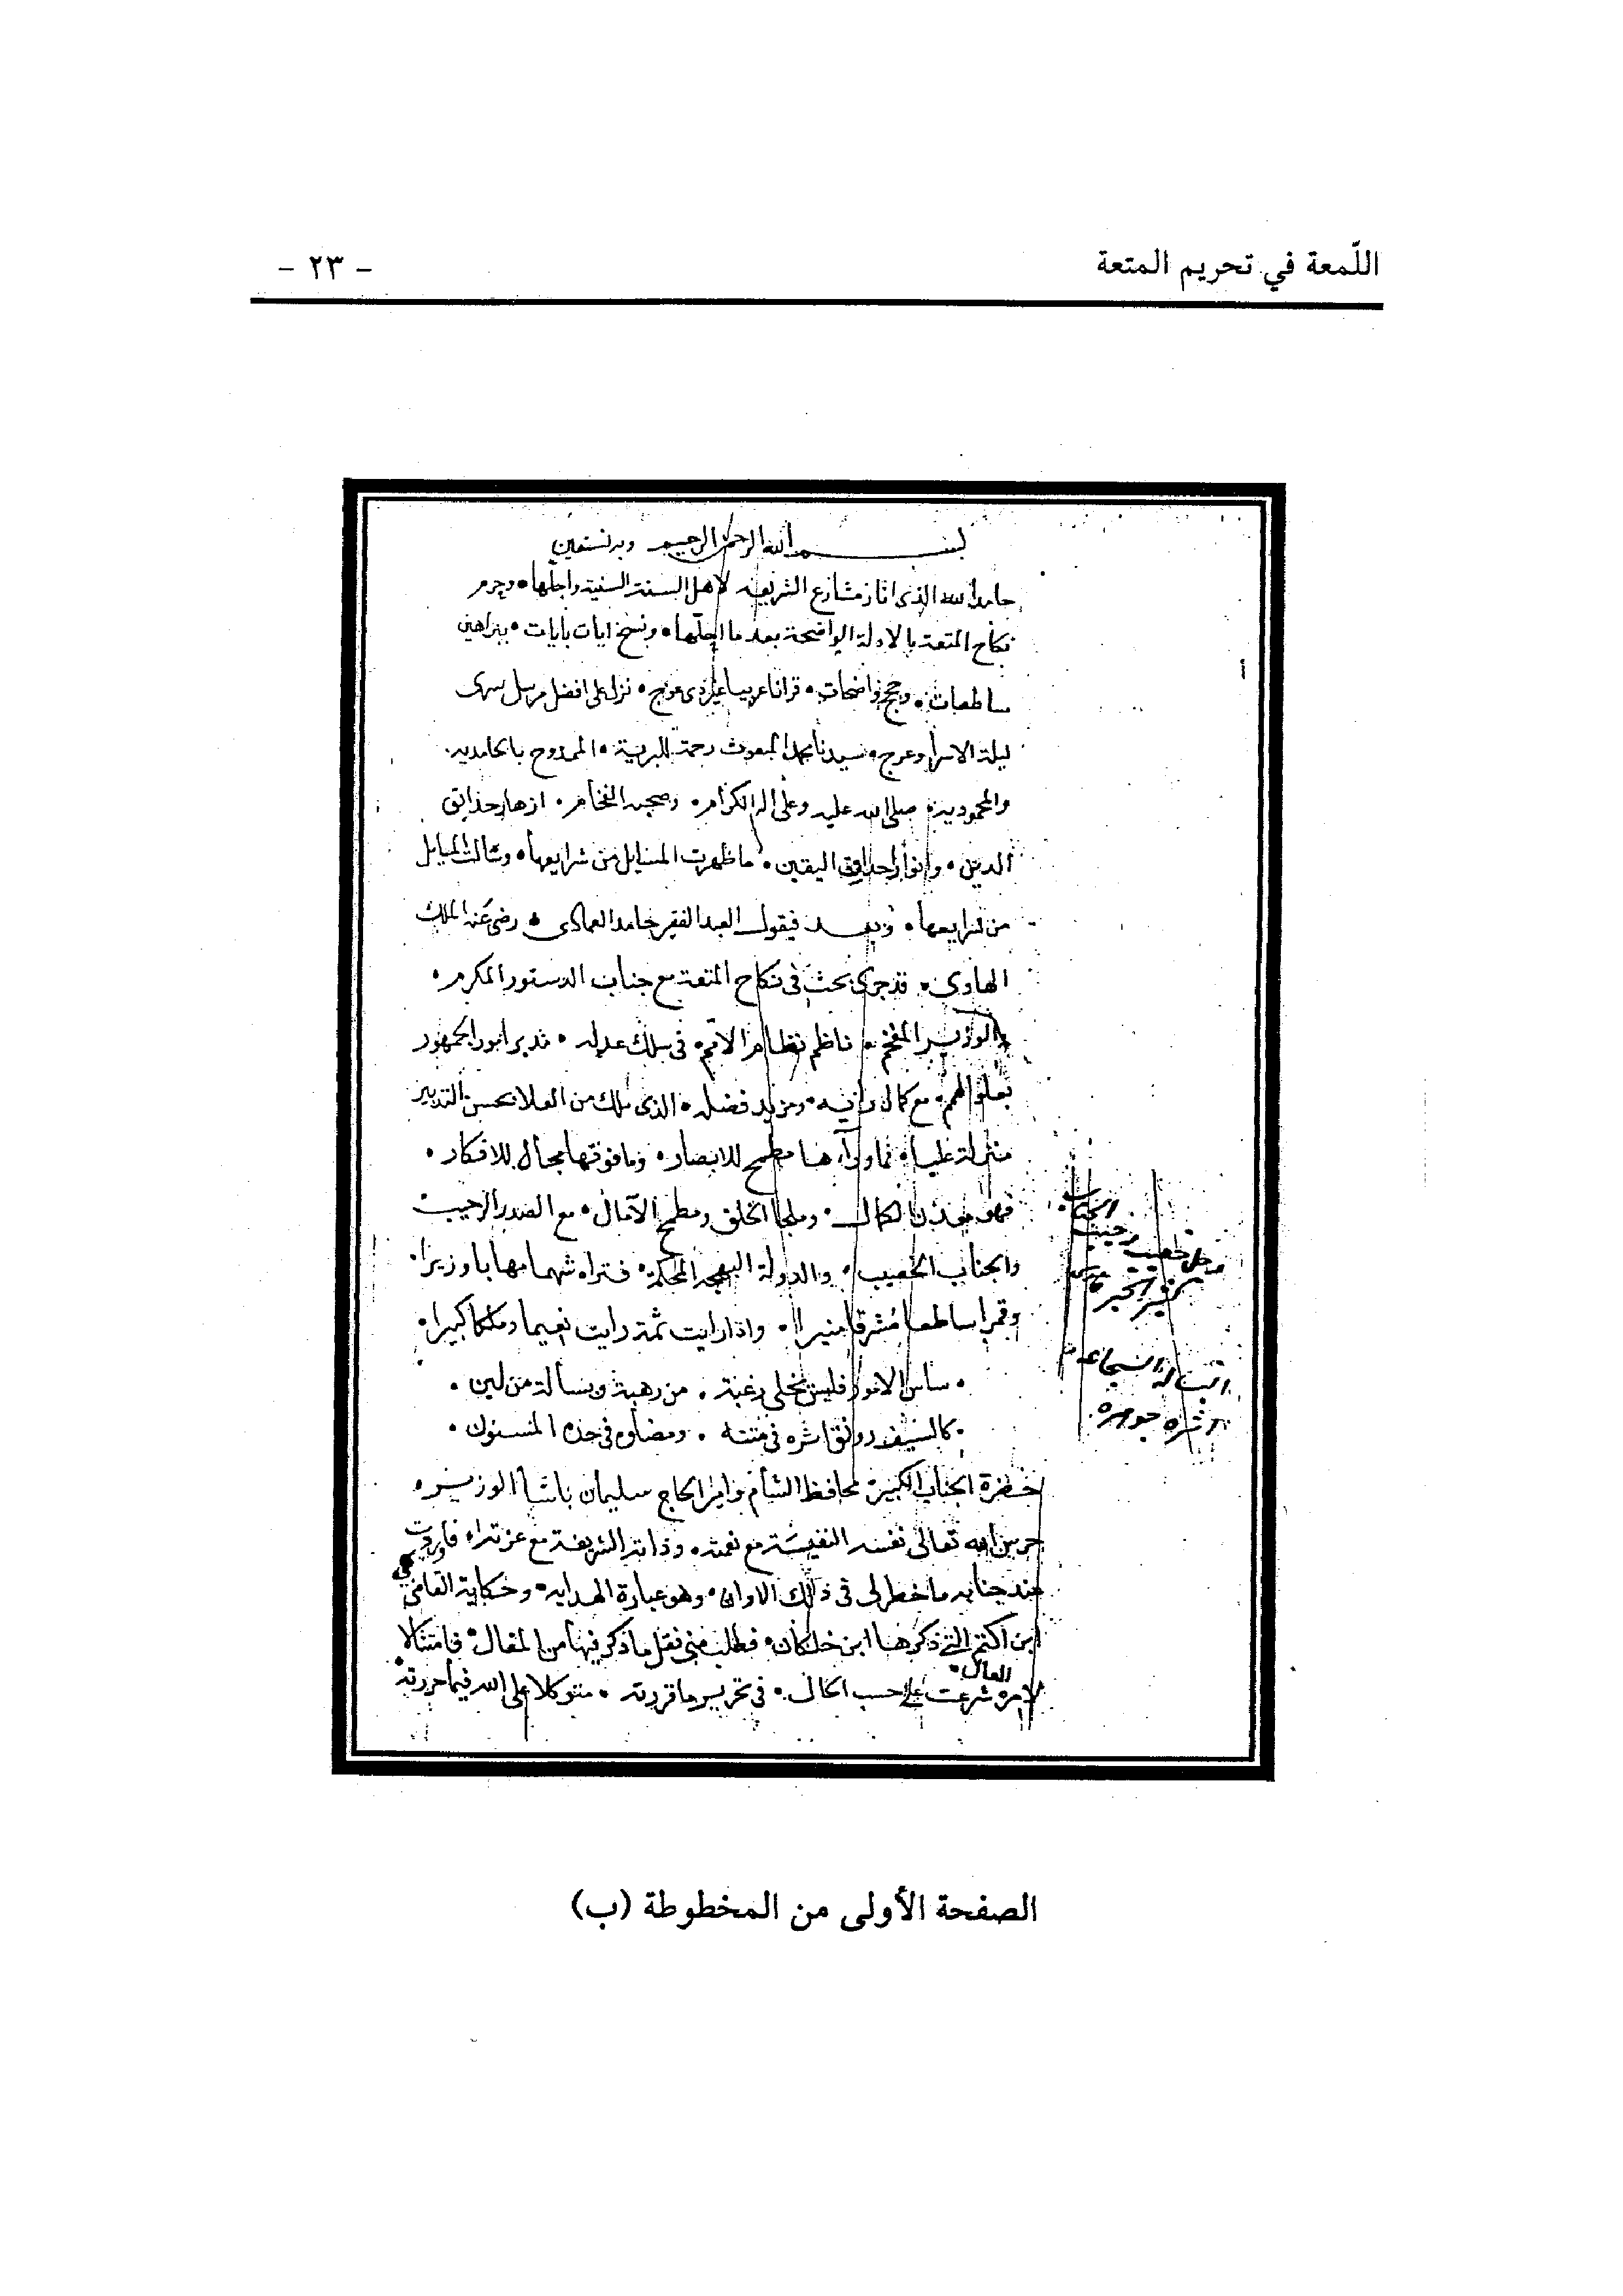 اللّمعة في تحريم المتعة
- ٢٣ -
بسم الله الرحمن الرحيم وبه نستعين
حامدا لله الذى انار مشارع الشريعه لاهل السنة السنية واجلها • وحرم
نكاح المتعة بالادلة الواضحة بعد ما احلها • ونسخ ايات بايات • ببراهين
ساطعات • وحجج واضحات • قرانا عربيا غير ذى عوج • نزل على افضل مرسل سرى
ليلة الاسرا وعرج • سيدنا محمد المبعوث رحمة للبرية • الممدوح بالحامدية
والمحمودية • صلى الله عليه وعلى اله الكرام • وصحبه الفخام • ازهار حدائق
الدين • وانوار احداق اليقين • ما ظهرت المسايل من شرايعها • وسالت المسايل
من ذرايعها • وبعد فيقول العبد الفقير حامد العمادى • رضى عنه الملك
الهادى • قد جرى بحث فى نكاح المتعة مع جناب الدستور المكرم •
والوزير المفخم • ناظم نظام الامم • فى سلك عدله • مدبر امور الجمهور
بعلو الهمم • مع كمال رايه • ومزيد فضله • الذى ملك من العلا بحسن التدبير
منزلة علياء • فما وراءها مطمح للابصار • وما فوقها مجال للافكار •
فهو معدن الكمال • وملجا الخلق ومطمح الآمال • مع الصدر الرحيب
والجناب الخصيب • والدولة البهجة المحكمة • فتراه شهما مهابا وزيرا •
وقمرا ساطعا مشرقا منيرا • واذا رايت ثمة رايت نعيما وملكا كبيرا •
• ساس الامور فليس يخلى رغبة • من رهبة وبسالة من لين •
• كالسيف رونق اثره فى متنه • ومضاؤه فى حده المسنون •
حضرة الجناب الكبير • محافظ الشام وامير الحاج سليمان باشا الوزير •
حرس الله تعالى نفسه النفيسة مع نعمته • وذاته الشريفة مع عزته • فاوردت
عند جنابه ما خطر لى فى ذلك الاوان • وهو عبارة الهداية • وحكاية القاضى
ابن اكثم التى ذكرها ابن خلكان • فطلب منى نقل ما ذكر فيها من المقال • فامتثالا
لامره العال • شرعت على حسب الحال • فى تحرير ما قررته • متوكلا على الله فيما حررته •
البسالة الشجاعة
اثره جوهره
الصفحة الأولى من المخطوطة (ب)